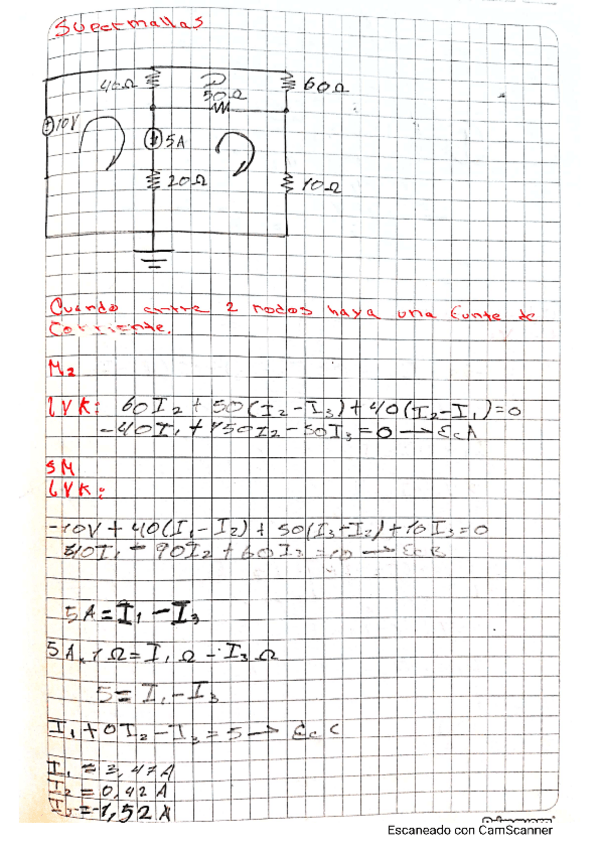 Supermallas
40Ω
50Ω
60Ω
10V
5A
20Ω
10Ω
Cuando entre 2 nodos haya una funte de
Corriente.
M2
LVK: 60I2 + 50(I2-I3) + 40(I2-I1)=0
-40I1 + 150I2 - 50I3 = 0 → Ec A
SM
LVK:
-10V + 40(I1-I2) + 50(I3-I2) + 10I3=0
40I1 - 90I2 + 60I3 = 10 → Ec B
5A = I1 - I3
5A.1Ω = I1Ω - I3Ω
5 = I1 - I3
I1 + 0I2 - I3 = 5 → Ec C
I1 = 3,47A
I2 = 0,42 A
I3 = -1,52 A
Escaneado con CamScanner